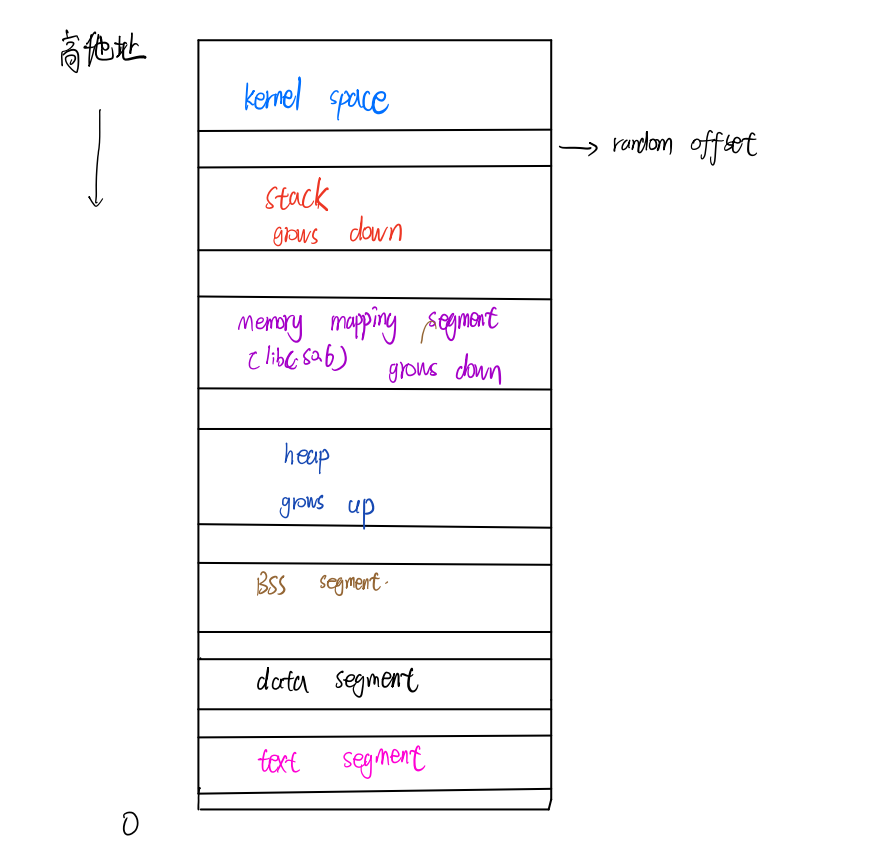 高地址
kernel space
random offset
stack
grows down
memory mapping segment
(libc.so.6)
grows down
heap
grows up
BSS segment
data segment
text segment
0